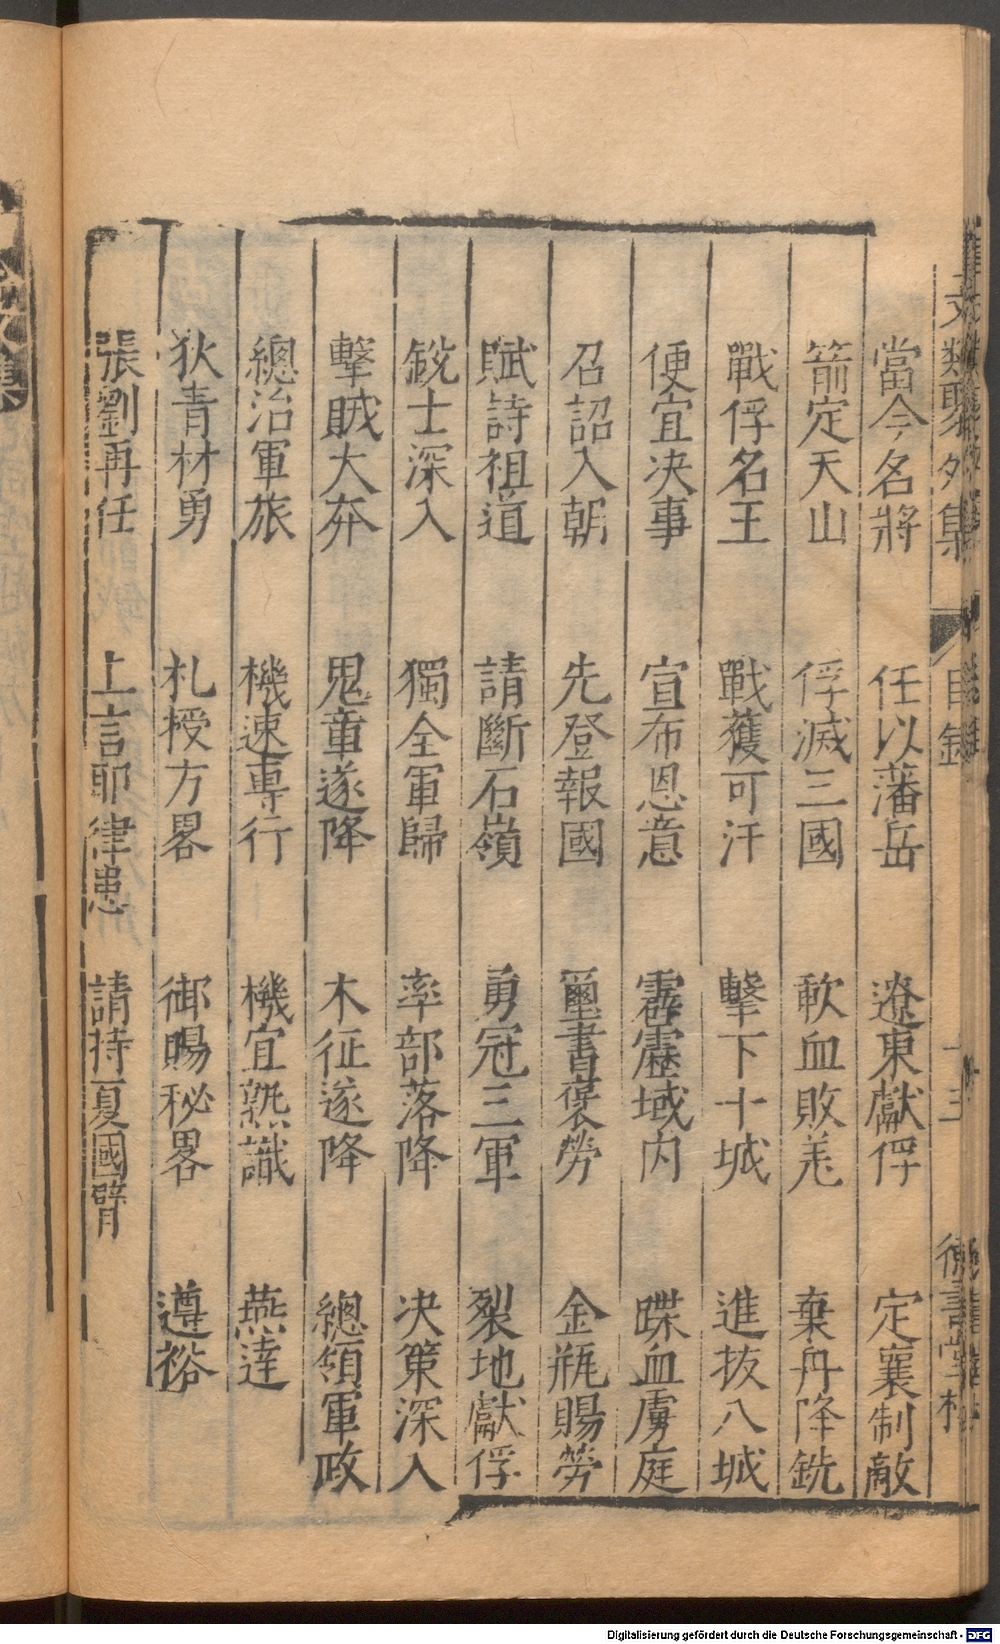 當今名將 任以藩岳 遼東獻俘 定襄制敵
箭定天山 俘滅三國 歃血敗羌 棄丹降銑
戰俘名王 戰獲可汗 擊下十城 進抜八城
便宜决事 宣布恩意 霹靂域内 蹀血虜庭
召詔入朝 先登報國 璽書褒勞 金瓶賜勞
賦詩祖道 請斷石嶺 勇冠三軍 裂地獻俘
銳士深入 獨全軍歸 率部落降 决策深入
擊賊大奔 鬼章遂降 木征遂降 總領軍政
總治軍旅 機速專行 機宜熟識 燕達
狄青材勇 札授方畧 御賜秘畧 遵裕
張劉再任 上言耶律患 請持夏國臂
文類聚外集 目録 十三 德壽堂梓
Digitalisierung gefördert durch die Deutsche Forschungsgemeinschaft - DFG